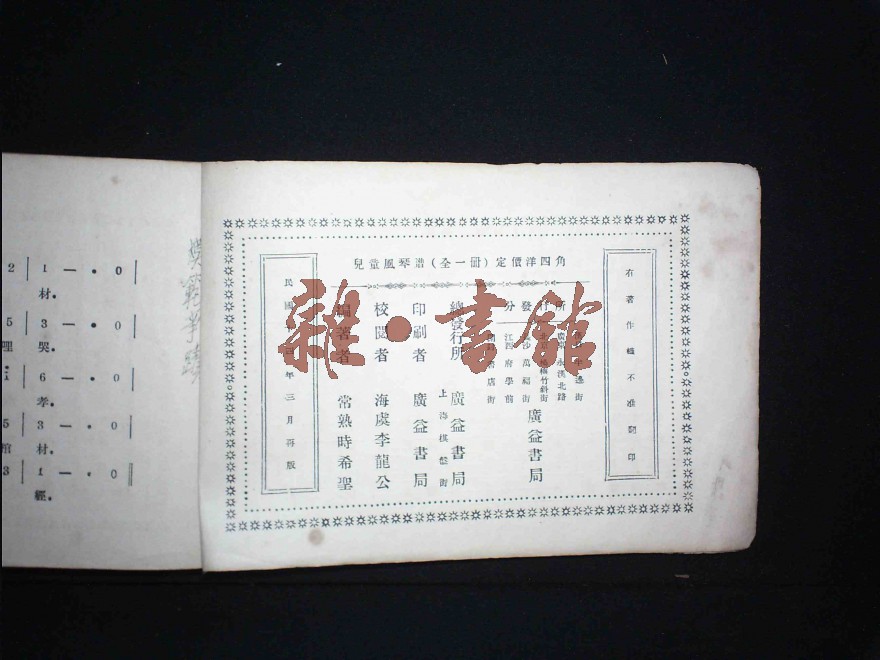 兒童風琴譜（全一冊）定價洋四角
有著作權不准翻印
分發行所
永漢北路
竹斜街
沙萬福街
江西府學前
廣益書局
總發行所 廣益書局
上海棋盤街
印刷者 廣益書局
校閱者 海虞李龍公
編著者 常熟時希聖
民國
年三月再版
雜·書館
2 1 — · 0
材．
5 3 — · 0
哭．
6 — · 0
孝．
5 3 — · 0
材．
3 1 — · 0
經．